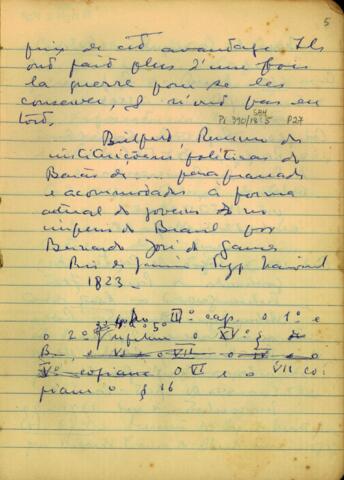 5
prix de cet avantage. Ils
ont fait plus d'une fois
la guerre pour se les
conserver, & n'ont pas eu
tort.
SBH
Pi 390/18:5 P27
Bielfeld, Resumo das
instituiçoens politicas do
Barão de ... parafraseado
e acommodado à forma
actual do governo do
imperio do Brasil por
Bernardo José da Gama
Rio de Janeiro, Typ Nacional
1823.
IIº cap. o 1º e
o 2º 3º 4º 5º o XVº §
B., e VI o VII o IX e o
Xº copiam o VI e o VII co
piam o § 16